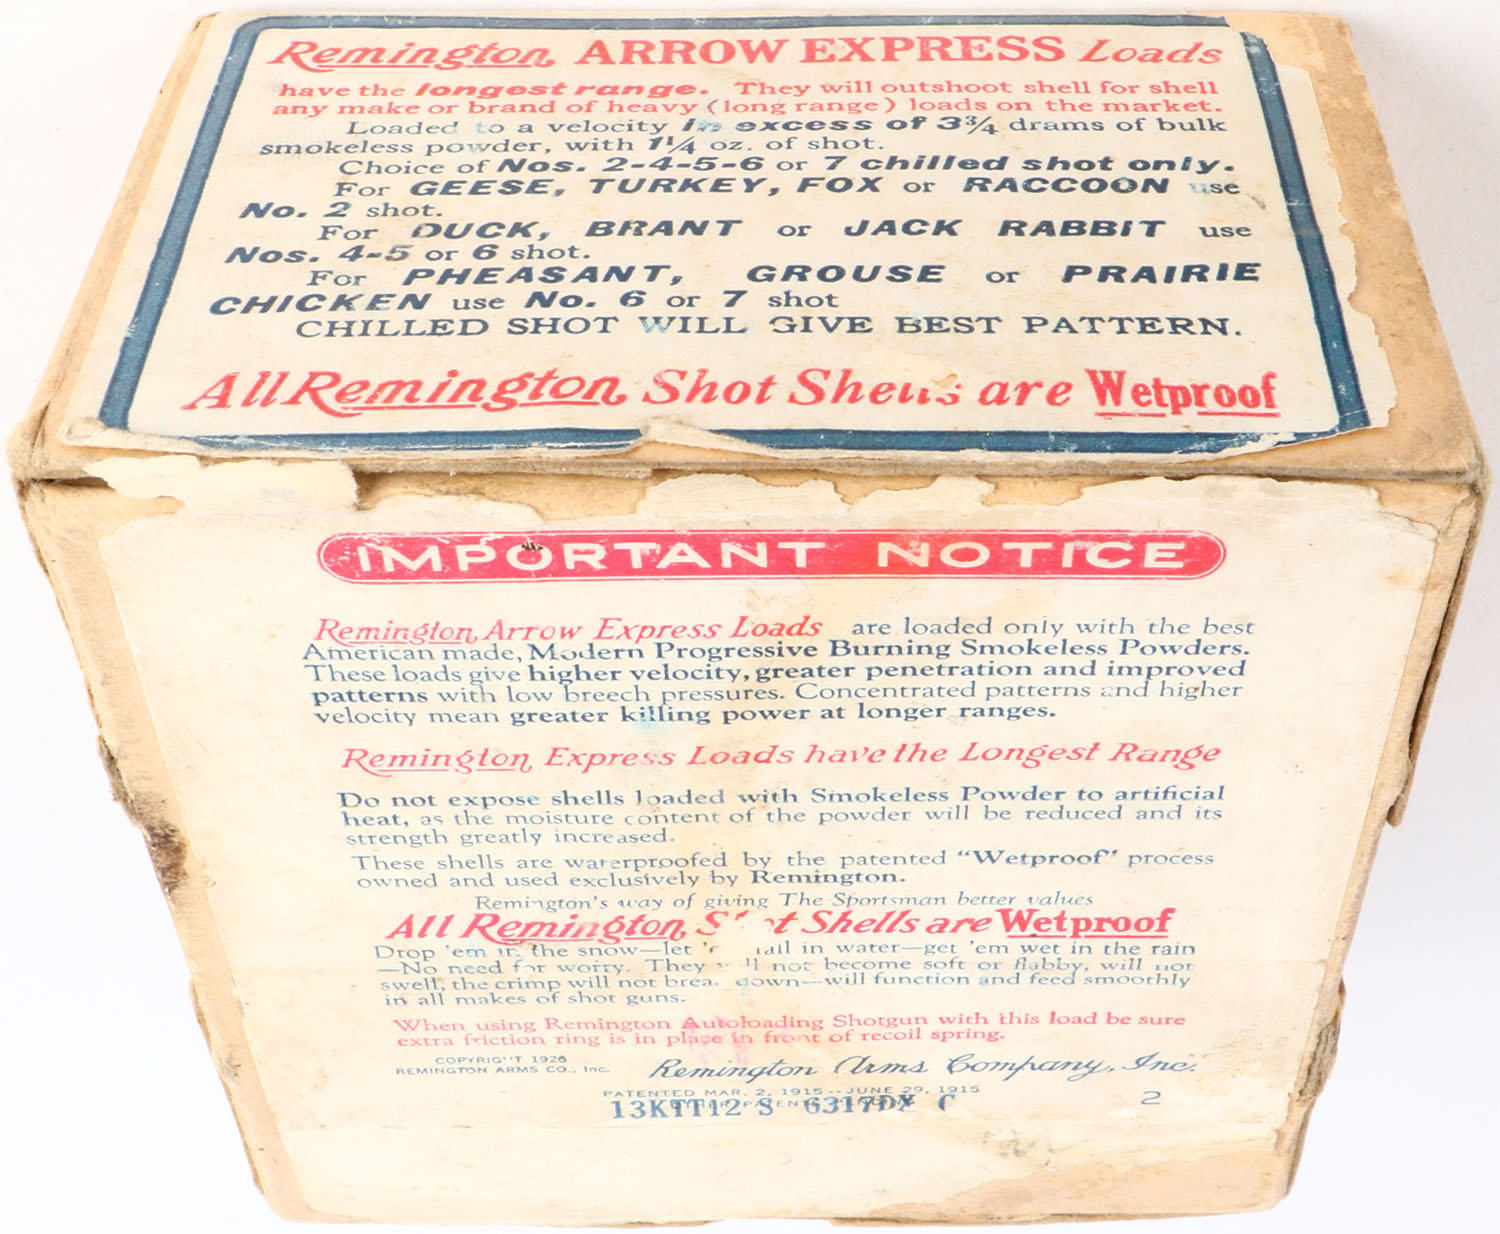 Remington ARROW EXPRESS Loads
have the longest range. They will outshoot shell for shell
any make or brand of heavy (long range) loads on the market.
Loaded to a velocity in excess of 3¾ drams of bulk
smokeless powder, with 1¼ oz. of shot.
Choice of Nos. 2-4-5-6 or 7 chilled shot only.
For GEESE, TURKEY, FOX or RACCOON use
No. 2 shot.
For DUCK, BRANT or JACK RABBIT use
Nos. 4-5 or 6 shot.
For PHEASANT, GROUSE or PRAIRIE
CHICKEN use No. 6 or 7 shot
CHILLED SHOT WILL GIVE BEST PATTERN.
All Remington Shot Shells are Wetproof
IMPORTANT NOTICE
Remington Arrow Express Loads are loaded only with the best
American made, Modern Progressive Burning Smokeless Powders.
These loads give higher velocity, greater penetration and improved
patterns with low breech pressures. Concentrated patterns and higher
velocity mean greater killing power at longer ranges.
Remington Express Loads have the Longest Range
Do not expose shells loaded with Smokeless Powder to artificial
heat, as the moisture content of the powder will be reduced and its
strength greatly increased.
These shells are waterproofed by the patented "Wetproof" process
owned and used exclusively by Remington.
Remington's way of giving The Sportsman better values
All Remington Shot Shells are Wetproof
Drop 'em in the snow—let 'em fall in water—get 'em wet in the rain
—No need for worry. They will not become soft or flabby, will not
swell, the crimp will not break down—will function and feed smoothly
in all makes of shot guns.
When using Remington Autoloading Shotgun with this load be sure
extra friction ring is in place in front of recoil spring.
COPYRIGHT 1926
REMINGTON ARMS CO., Inc.
Remington Arms Company, Inc.
PATENTED MAR. 2, 1915--JUNE 29, 1915
13K1T12 S 6317DX C
2